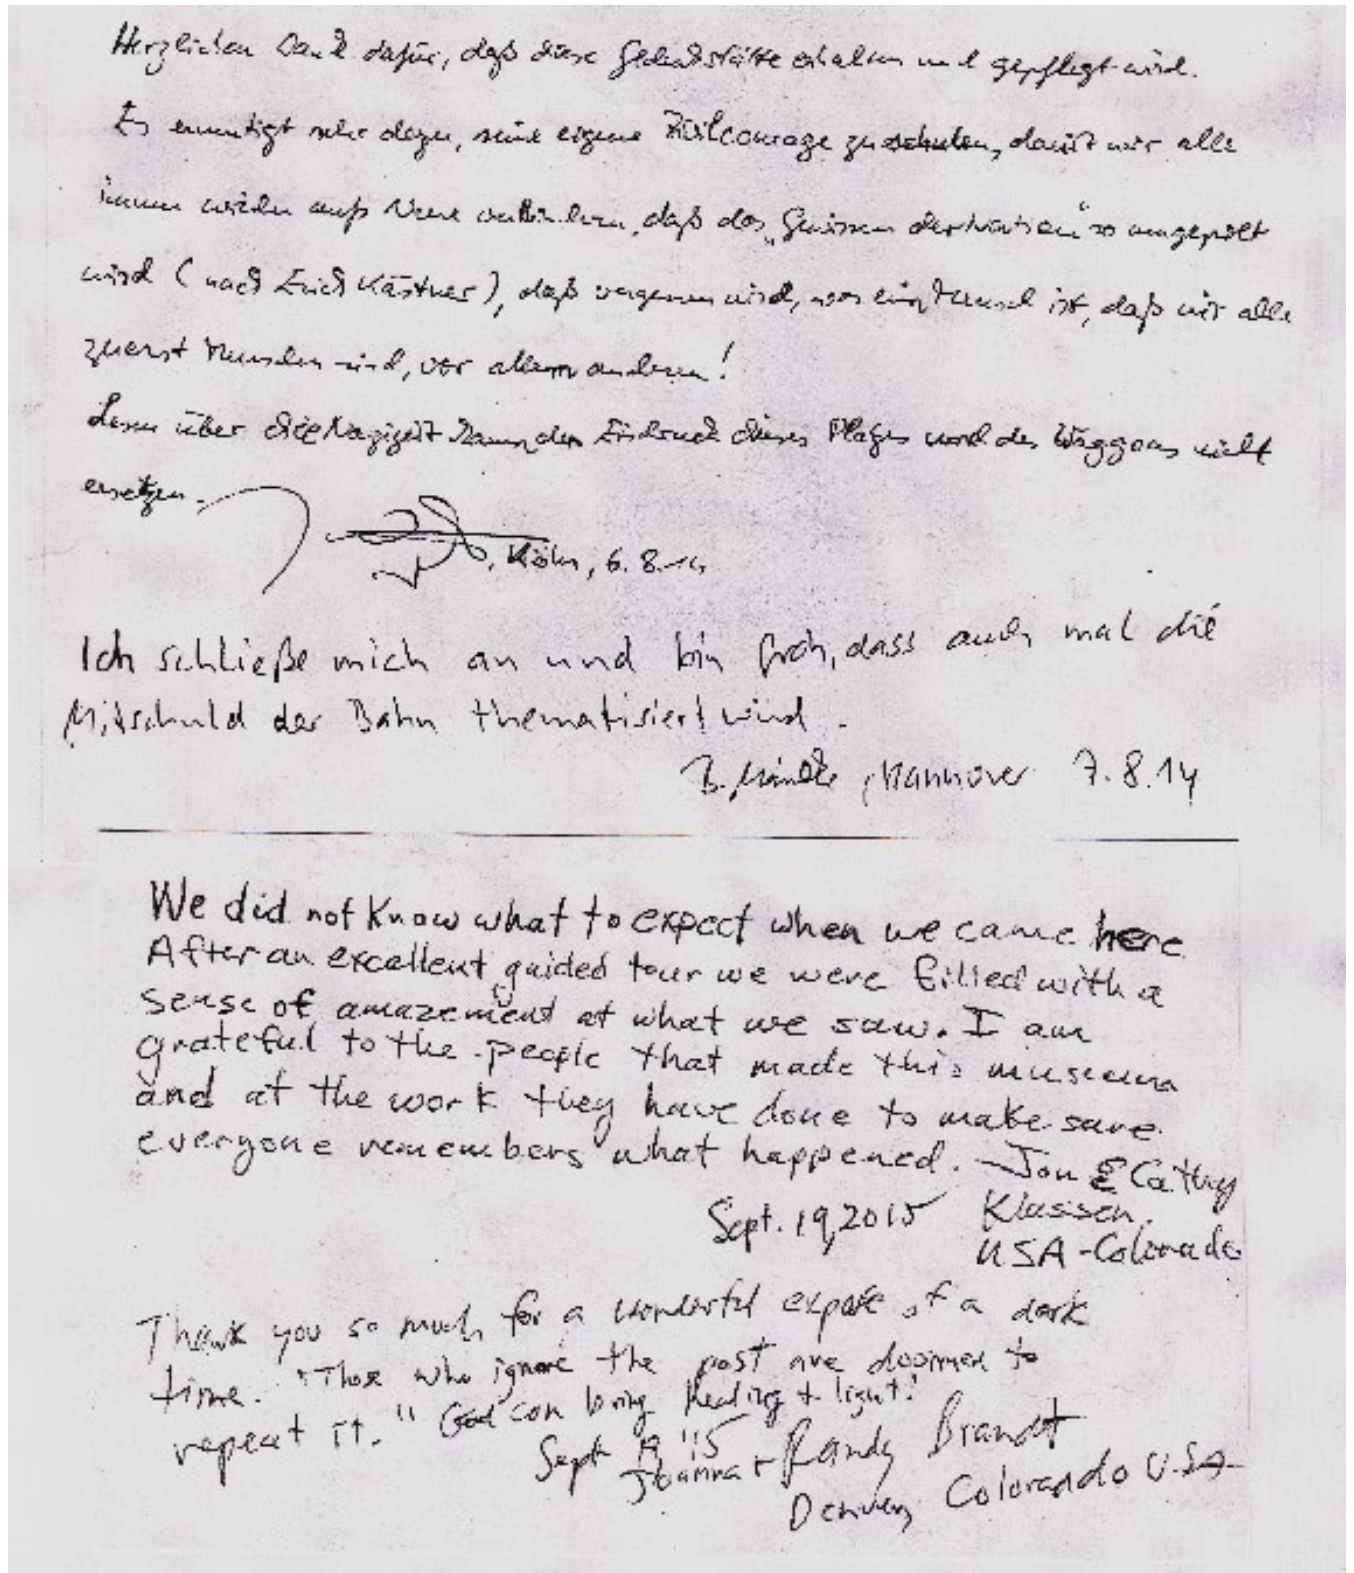 Herzlichen Dank dafür, daß diese Gedenkstätte erhalten und gepflegt wird.
Es ermutigt sehr dazu, seine eigene Zivilcourage zu schulen, damit wir alle
immer wieder aufs Neue verhindern, daß das „Gewissen der Nation" so umgepolt
wird (nach Erich Kästner), daß vergessen wird, was ein Mensch ist, daß wir alle
zuerst Menschen sind, vor allem anderen!
Lesen über die Nazizeit kann den Eindruck dieses Platzes und des Waggons nicht
ersetzen.
, Köln, 6.8.14
Ich schließe mich an und bin froh, dass auch mal die
Mitschuld der Bahn thematisiert wird.
B. , Hannover 7.8.14
We did not know what to expect when we came here
After an excellent guided tour we were filled with a
sense of amazement at what we saw. I am
grateful to the people that made this museum
and at the work they have done to make sure
everyone remembers what happened. - Jon & Cathy
Sept. 19, 2015 Klassen
USA - Colorado
Thank you so much for a wonderful expose of a dark
time. "Those who ignore the past are doomed to
repeat it." God can bring healing + light!
Sept 19 '15
Joanna + Randy Brandt
Denver, Colorado U.S.A.